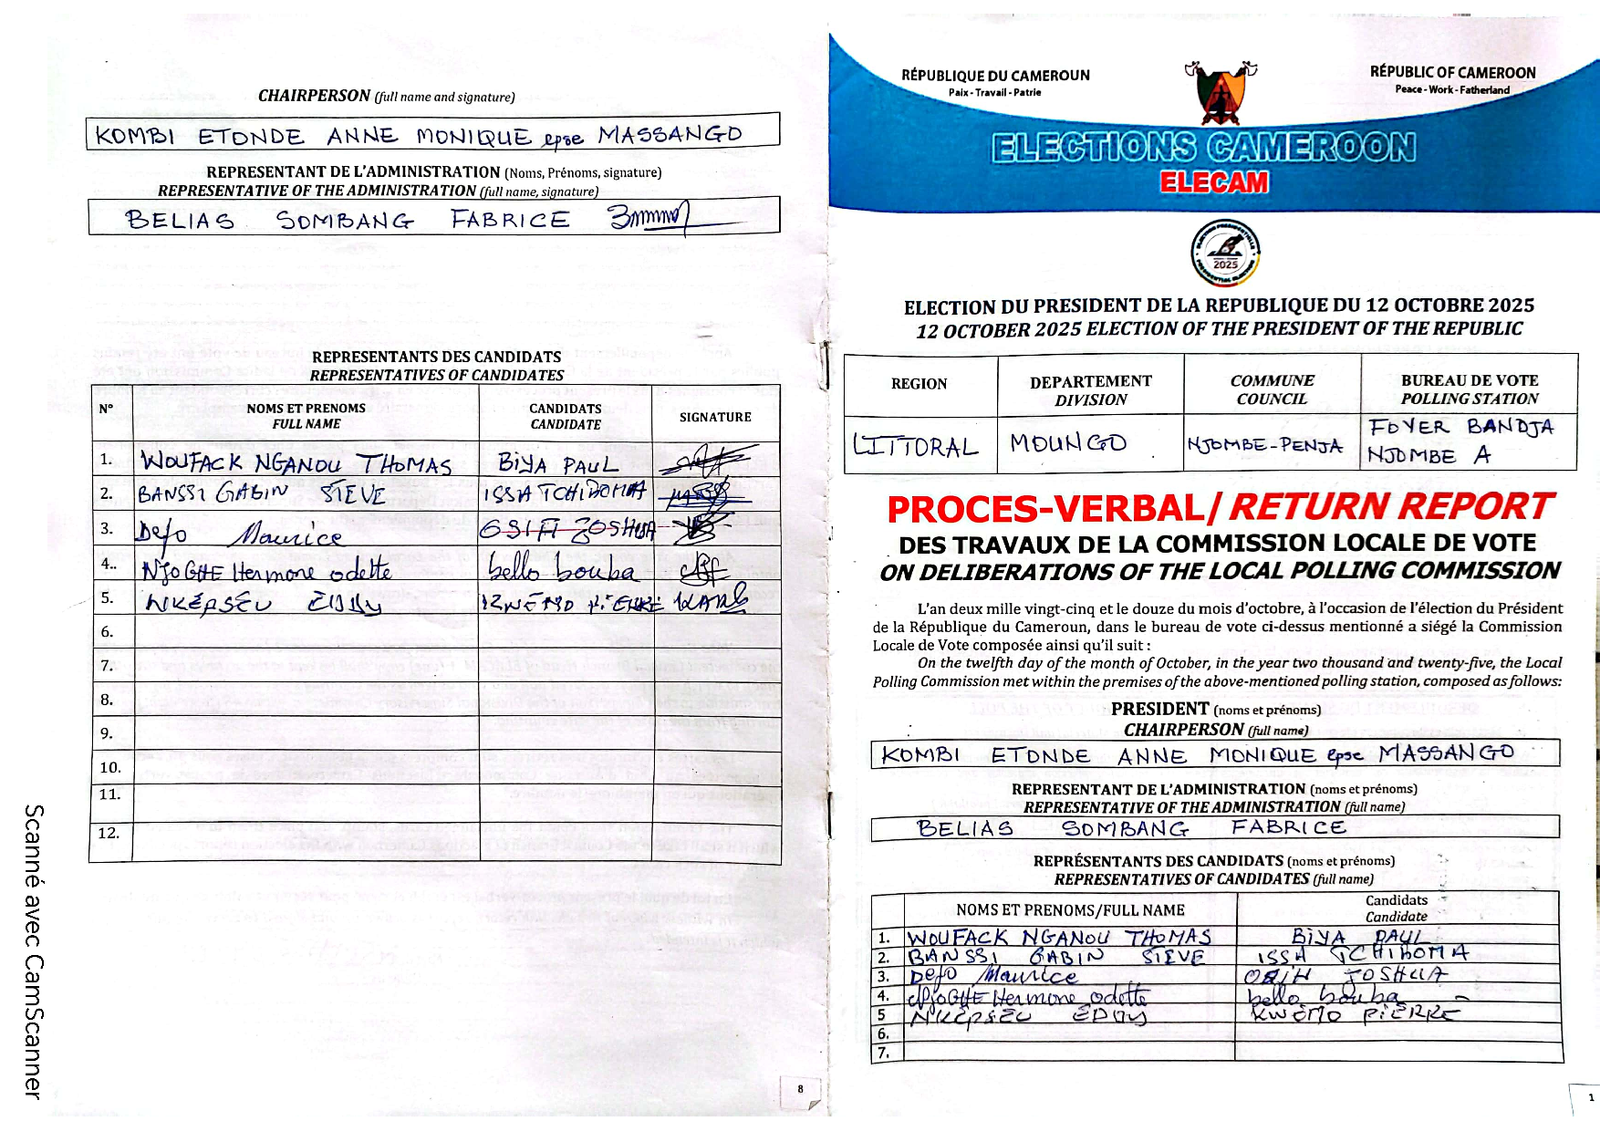 CHAIRPERSON (full name and signature)
KOMBI ETONDE ANNE MONIQUE epse MASSANGO
REPRESENTANT DE L'ADMINISTRATION (Noms, Prénoms, signature)
REPRESENTATIVE OF THE ADMINISTRATION (full name, signature)
BELIAS SOMBANG FABRICE
REPRESENTANTS DES CANDIDATS
REPRESENTATIVES OF CANDIDATES
N° NOMS ET PRENOMS FULL NAME CANDIDATS CANDIDATE SIGNATURE
1. WOUFACK NGANOU THOMAS BIYA PAUL
2. BANSSI GABIN STEVE ISSA TCHIROMA
3. Defo Maurice OSIH JOSHUA
4.. NJOGHE Hermone odette bello bouba
5. NKEPSEU EDDY KWEMO PIERRE
6.
7.
8.
9.
10.
11.
12.
8
Scanné avec CamScanner
RÉPUBLIQUE DU CAMEROUN
Paix - Travail - Patrie
RÉPUBLIC OF CAMEROON
Peace - Work - Fatherland
ELECTIONS CAMEROON
ELECAM
2025
ELECTION DU PRESIDENT DE LA REPUBLIQUE DU 12 OCTOBRE 2025
12 OCTOBER 2025 ELECTION OF THE PRESIDENT OF THE REPUBLIC
REGION DEPARTEMENT DIVISION COMMUNE COUNCIL BUREAU DE VOTE POLLING STATION
LITTORAL MOUNGO NJOMBE-PENJA FOYER BANDJA NJOMBE A
PROCES-VERBAL/RETURN REPORT
DES TRAVAUX DE LA COMMISSION LOCALE DE VOTE
ON DELIBERATIONS OF THE LOCAL POLLING COMMISSION
L'an deux mille vingt-cinq et le douze du mois d'octobre, à l'occasion de l'élection du Président
de la République du Cameroun, dans le bureau de vote ci-dessus mentionné a siégé la Commission
Locale de Vote composée ainsi qu'il suit :
On the twelfth day of the month of October, in the year two thousand and twenty-five, the Local
Polling Commission met within the premises of the above-mentioned polling station, composed as follows:
PRESIDENT (noms et prénoms)
CHAIRPERSON (full name)
KOMBI ETONDE ANNE MONIQUE epse MASSANGO
REPRESENTANT DE L'ADMINISTRATION (noms et prénoms)
REPRESENTATIVE OF THE ADMINISTRATION (full name)
BELIAS SOMBANG FABRICE
REPRÉSENTANTS DES CANDIDATS (noms et prénoms)
REPRESENTATIVES OF CANDIDATES (full name)
NOMS ET PRENOMS/FULL NAME Candidats Candidate
1. WOUFACK NGANOU THOMAS BIYA PAUL
2. BANSSI GABIN STEVE ISSA TCHIROMA
3. Defo Maurice OSIH JOSHUA
4. NJOGHE Hermone odette bello bouba
5 NKEPSEU EDDY KWEMO PIERRE
6.
7.
1